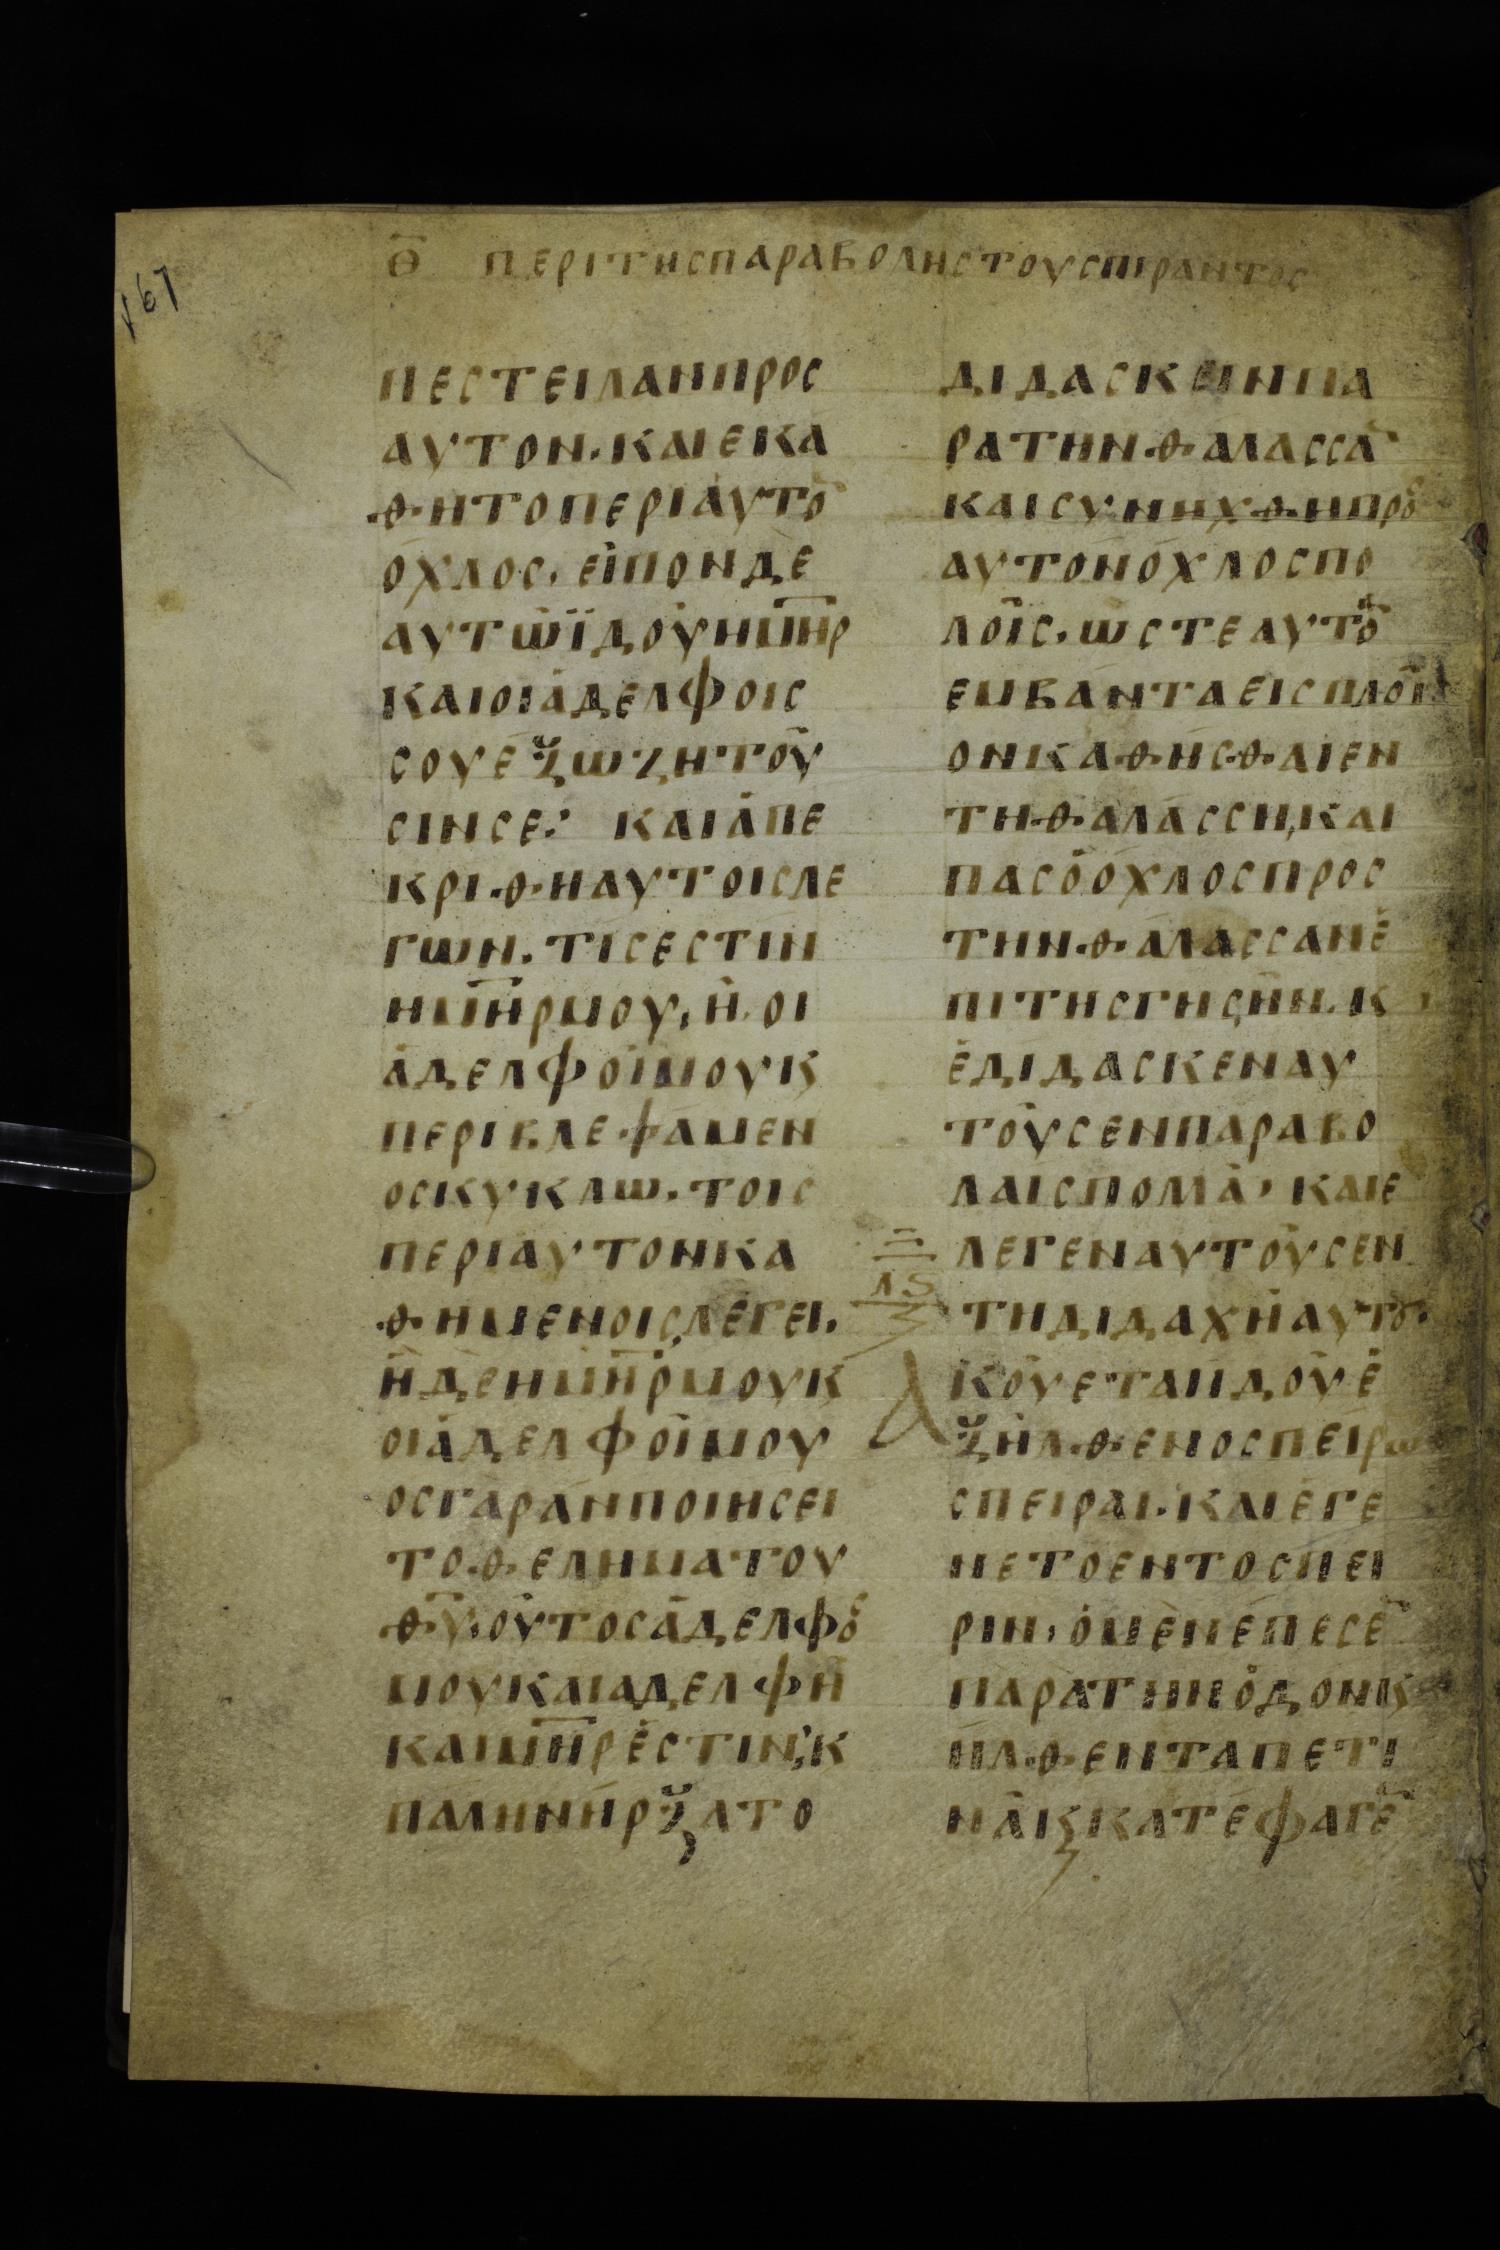 Θ ΠΕΡΙΤΗCΠΑΡΑΒΟΛΗCΤΟΥCΠΙΡΑΝΤΟC
ΠΕCΤΕΙΛΑΝΠΡΟC
ΑΥΤΟΝ.ΚΑΙΕΚΑ
ΘΗΤΟΠΕΡΙΑΥΤΟ̅
ΟΧΛΟC,ΕΙΠΟΝΔΕ
ΑΥΤΩΪΔΟΥΗΜ̅Η̅Ρ
ΚΑΙΟΙΑΔΕΛΦΟΙC
CΟΥΕΞΩΖΗΤΟΥ
CΙΝCΕ: ΚΑΙΑΠΕ
ΚΡΙΘΗΑΥΤΟΙCΛΕ
ΓΩΝ.ΤΙCΕCΤΙΝ
ΗΜ̅Η̅ΡΜΟΥ,Η.ΟΙ
ΑΔΕΛΦΟΙΜΟΥΚϚ
ΠΕΡΙΒΛΕΨΑΜΕΝ
ΟCΚΥΚΛΩ.ΤΟΙC
ΠΕΡΙΑΥΤΟΝΚΑ
ΘΗΜΕΝΟΙC,ΛΕΓΕΙ.
ΗΔΕΗΜ̅Η̅ΡΜΟΥΚ
ΟΙΑΔΕΛΦΟΙΜΟΥ
ΟCΓΑΡΑΝΠΟΙΗCΕΙ
ΤΟΘΕΛΗΜΑΤΟΥ
Θ̅Υ̅,ΟΥΤΟCΑΔΕΛΦΟC
ΜΟΥΚΑΙΑΔΕΛΦΗ
ΚΑΙΜ̅Η̅ΡΕCΤΙΝ;Κ
ΠΑΛΗΝΗΡΞΑΤΟ
ΔΙΔΑCΚΕΙΝΠΑ
ΡΑΤΗΝΘΑΛΑCCΑ̅
ΚΑΙCΥΝΗΧΘΗΠΡΟC
ΑΥΤΟΝΟΧΛΟCΠΟ
ΛΟΙC,ΩCΤΕΑΥΤΟ̅
ΕΜΒΑΝΤΑΕΙCΠΛΟΙ
ΟΝΚΑΘΗCΘΑΙΕΝ
ΤΗΘΑΛΑCCΗ,ΚΑΙ
ΠΑCΟΟΧΛΟCΠΡΟC
ΤΗΝΘΑΛΑCCΑΝΕ
ΠΙΤΗCΓΗCΗΝ.Κ
ΕΔΙΔΑCΚΕΝΑΥ
ΤΟΥCΕΝΠΑΡΑΒΟ
ΛΑΙCΠΟΛΛΑ, ΚΑΙΕ
ΛΕΓΕΝΑΥΤΟΥCΕΝ
ΛϚ
ΤΗΔΙΔΑΧΗΑΥΤΟΥ.
ΑΚΟΥΕΤΑΙΙΔΟΥΕ
ΞΗΛΘΕΝΟCΠΕΙΡΩ
CΠΕΙΡΑΙ.ΚΑΙΕΓΕ
ΝΕΤΟΕΝΤΟCΠΕΙ
ΡΙΝ,ΟΜΕΝΕΠΕCΕ̅
ΠΑΡΑΤΗΝΟΔΟΝΚϚ
ΗΛΘΕΝΤΑΠΕΤΙ
ΝΑΚϚΚΑΤΕΦΑΓΕ̅